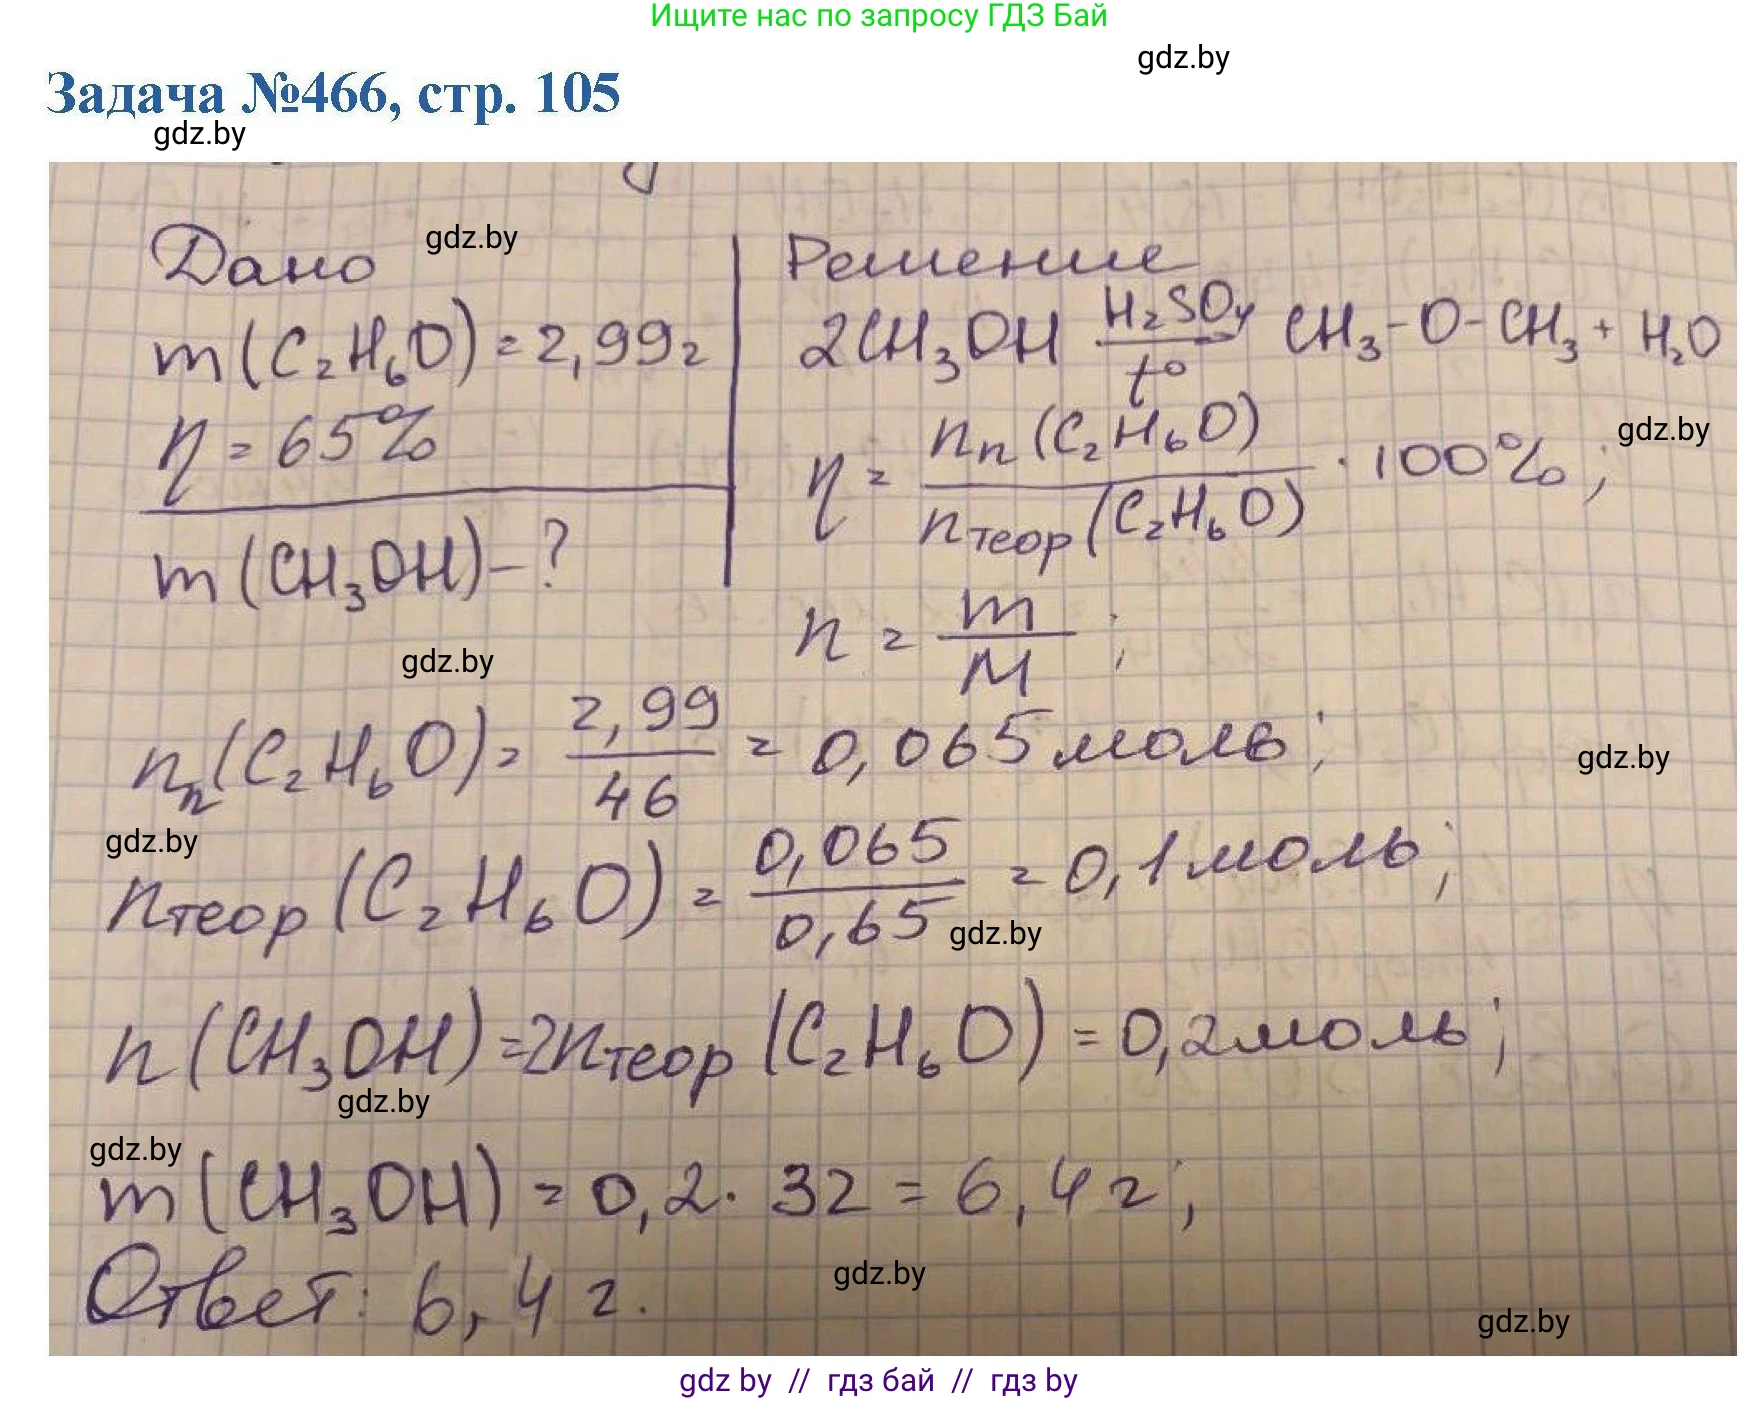 Ищите нас по запросу ГДЗ Бай
gdz.by
Задача №466, стр. 105
gdz.by
Дано
gdz.by
m(C₂H₆O) = 2,99г
η = 65%
m(CH₃OH) - ?
gdz.by
Решение
2CH₃OH H₂SO₄ t° CH₃-O-CH₃ + H₂O
gdz.by
η = nп(C₂H₆O) / nтеор(C₂H₆O) · 100%;
n = m / M;
nп(C₂H₆O) = 2,99 / 46 = 0,065 моль;
gdz.by
gdz.by
nтеор(C₂H₆O) = 0,065 / 0,65 = 0,1 моль;
gdz.by
n(CH₃OH) = 2nтеор(C₂H₆O) = 0,2 моль;
gdz.by
gdz.by
m(CH₃OH) = 0,2 · 32 = 6,4 г;
gdz.by
Ответ: 6,4 г.
gdz.by
gdz by // гдз бай // гдз by